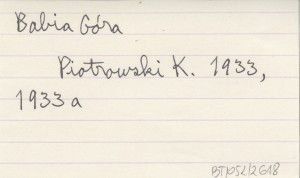 Babia Góra
Piotrowski K. 1933,
1933 a